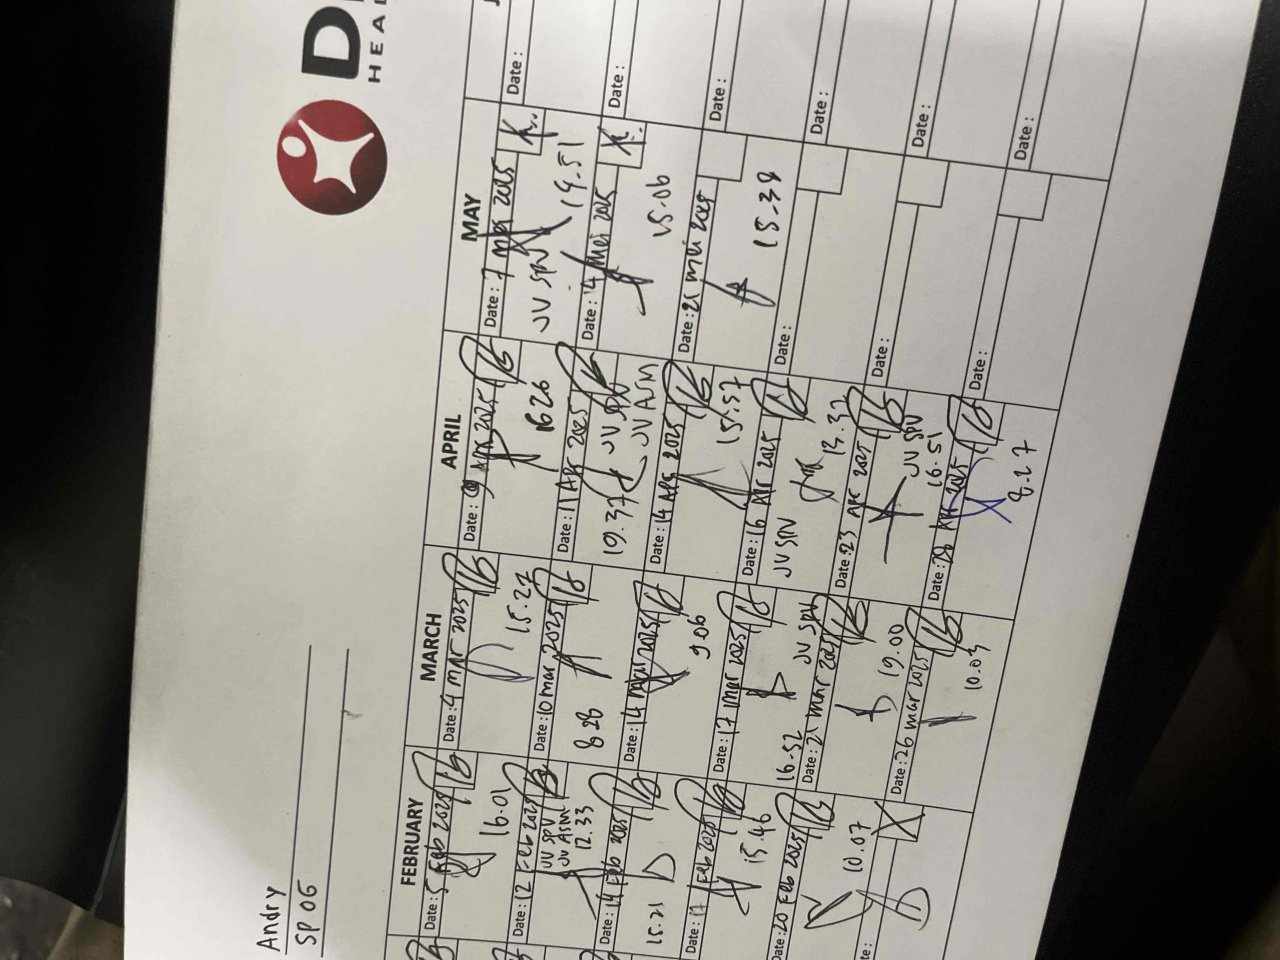 Andry
SP OG
D
HEA
FEBRUARY
Date: 5 Feb 2025
16.01
Date: 12 Feb 2025
JV SPV
JV ASM
12.33
Date: 14 Feb 2025
15.21
Date: 17 Feb 2025
15.46
Date: 20 Feb 2025
10.07
te:
MARCH
Date: 4 mar 2025
15.27
Date: 10 mar 2025
8.28
Date: 14 mar 2025
9.06
Date: 17 mar 2025
16.52
JV SPV
Date: 21 mar 2025
19.00
Date: 26 mar 2025
10.03
APRIL
Date: 9 Apr 2025
1626
Date: 11 Apr 2025
19.37
JV SPV
JV ASM
Date: 14 Apr 2025
15.57
Date: 16 Apr 2025
JV SPV
13.32
Date: 23 Apr 2025
JV SPV
16.51
Date: 28 Apr 2025
8.27
MAY
Date: 7 Mei 2025
K.
JV SPV
19.51
Date: 14 Mei 2025
K.
15.06
Date: 21 mei 2025
15.38
Date:
Date:
Date:
Date:
Date:
Date:
Date:
Date:
Date: